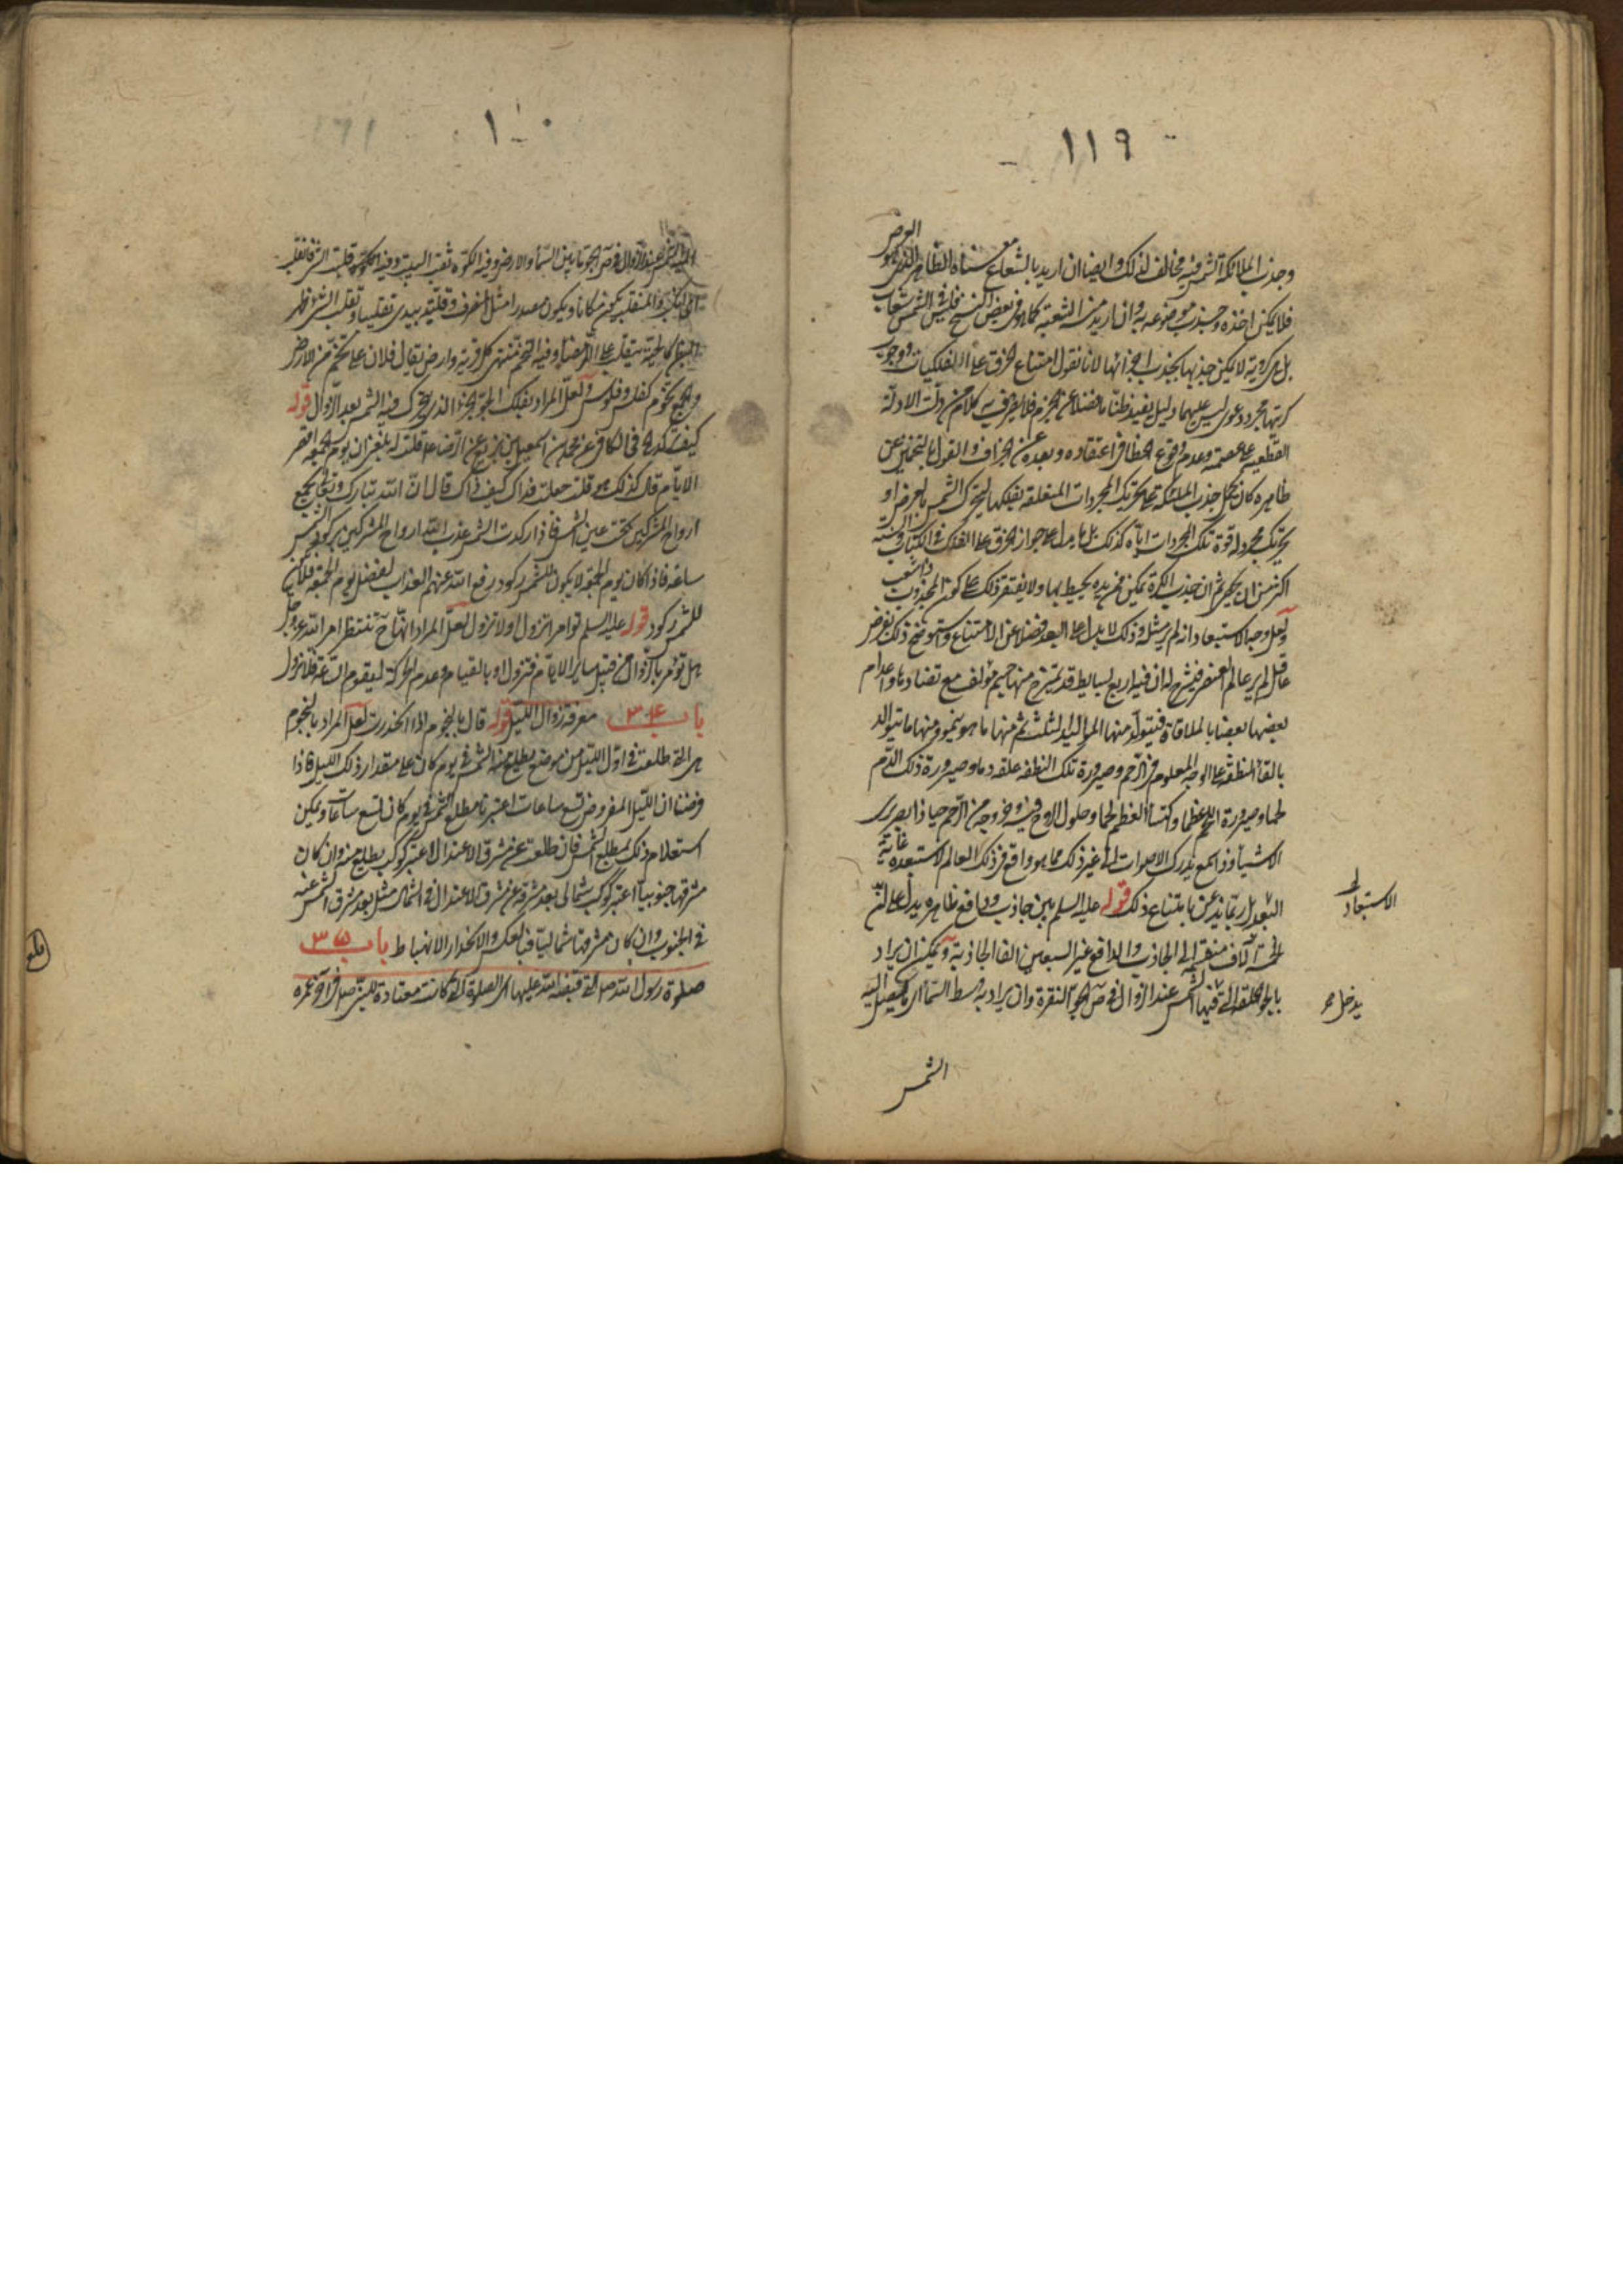 ١١٩
وجذب الملائكة الشمس فيه مخالف لذلك وايضا ان اريد بالشعاع معناه الظاهر الذي هو العرض
فلا يمكن اخذه وجذبه موضوعه به وان اريد منه الشعبة كما هو في بعض النسخ فليس في الشمس شعاب
بل هي كروية لا يمكن جذبها بجذب اجزائها لانا نقول امتناع الخرق على الفلكيات ووجوب
كريتها مجرد دعوى ليس عليهما دليل يفيد ظنا ما فضلا عن الجزم فلا يصرف به كلام من دلت الادلة
القطعية على عصمته وعدم وقوع الخطا في اعتقاده وبعده عن الجزاف والقول بالتخمين عن
ظاهره كان يحمل جذب الملائكة على تحريك المجردات المتعلقة بفلكها ليتحرك الشمس بالعرض او
تحريك مجرد له قوة تلك المجردات اياه كذلك بل ما يدل على جواز الخرق على الفلك في الكتاب والسنة
اكثر من ان يحصى ثم ان جذب الكرة يمكن ممن يده يحيط بها ولا يفتقر ذلك على كون المجذوب ذا شعب
ولعل وجه الاستبعاد انه لم ير مثله وذلك لا يدل على البعد فضلا عن الامتناع ويتوضح ذلك بفرض
عاقل لم ير عالم العنصر فيشرح له ان فيه اربع بسايط قد يمتزج منها جسم مؤلف مع تضادها واعدام
بعضها بعضا بالملاقاة فيتولد منها المواليد الثلث ثم منها ما هو ينمو ومنها ما يتوالد
بالقاء النطفة على الوجه المعلوم في الرحم وصيرورة تلك النطفة علقة دما وصيرورة ذلك الدم
لحما وصيرورة اللحم عظما واكتساء العظم لحما وحلول الروح فيه وخروجه من الرحم حيا ذا بصر يرى
الاشياء وذا سمع يدرك الاصوات الى غير ذلك مما هو واقع في ذلك العالم لاستبعده غاية
البعد بل ربما يذعن بامتناع ذلك قوله عليه السلم بين جاذب ودافع ظاهره يدل على ان
خمسة آلاف منقسم الى الجاذب والدافع غير السبعين الفا الجاذبة ويمكن ان يراد
بالجو الحلقة التي فيها الشمس عند الزوال في ص الجو النقرة وان يراد به وسط السماء الذي يصل اليه
الاستبعاد
يدخل
الشمس
الشمس عند الزوال في ص الجو ما بين السماء والارض وفيه الكوة ثقب البيت وفيه قلبت الشئ فانقلب
اي انكب والمنقلب يكون مكانا ويكون مصدرا مثل المنصرف وقلبته بيدي تقليبا وتقلب الشئ ظهر
لبطن كالحية يتقلب على الرمضاء وفيه التخم منتهى كل قرية وارض يقال فلان على تخم من الارض
والجمع تخوم كفلس وفلوس ولعل المراد بفلك الجو الجزء الذي يتحرك فيه الشمس بعد الزوال قوله
كيف تركد في الكافي عن محمد بن اسمعيل بن بزيع عن الرضا ع قلت له بلغني ان يوم الجمعة اقصر
الايام قال كذلك هو قلت جعلت فداك كيف ذاك قال ان الله تبارك وتعالى يجمع
ارواح المشركين تحت عين الشمس فاذا ركدت الشمس عذب الله ارواح المشركين بركود الشمس
ساعة فاذا كان يوم الجمعة لا يكون للشمس ركود رفع الله عنهم العذاب لفضل يوم الجمعة فلا يكون
للشمس ركود قوله عليه السلم تؤامر اتزول او لا تزول لعل المراد انها ح تنتظر امر الله عز وجل
هل تؤمر بالزوال من قبيل ساير الايام فتزول او بالقيام وعدم الحركة ليقوم الساعة فلا تزول
باب ٣٤ معرفة زوال الليل قوله قال بالنجوم اذا انحدرت لعل المراد بالنجوم
هي التي طلعت في اول الليل من موضع يطلع منه الشمس في يوم كان على مقدار ذلك الليل فاذا
فرضنا ان الليل المفروض تسع ساعات اعتبرنا مطلع الشمس في يوم كان تسع ساعات ويمكن
استعلام ذلك بمطلع الشمس فان طلعت عن مشرق الاعتدال اعتبر كوكب يطلع منه وان كان
مشرقها جنوبيا اعتبر كوكب شمالي بعد مشرقه عن مشرق الاعتدال في الشمال مثل بعد مشرق الشمس عنه
في الجنوب وان كان مشرقها شماليا فبالعكس والانحدار الانهباط باب ٣٥
صلوة رسول الله ص التي قبضه الله عليها اي الصلوة التي كانت معتادة للنبي صلى الله في آخر عمره